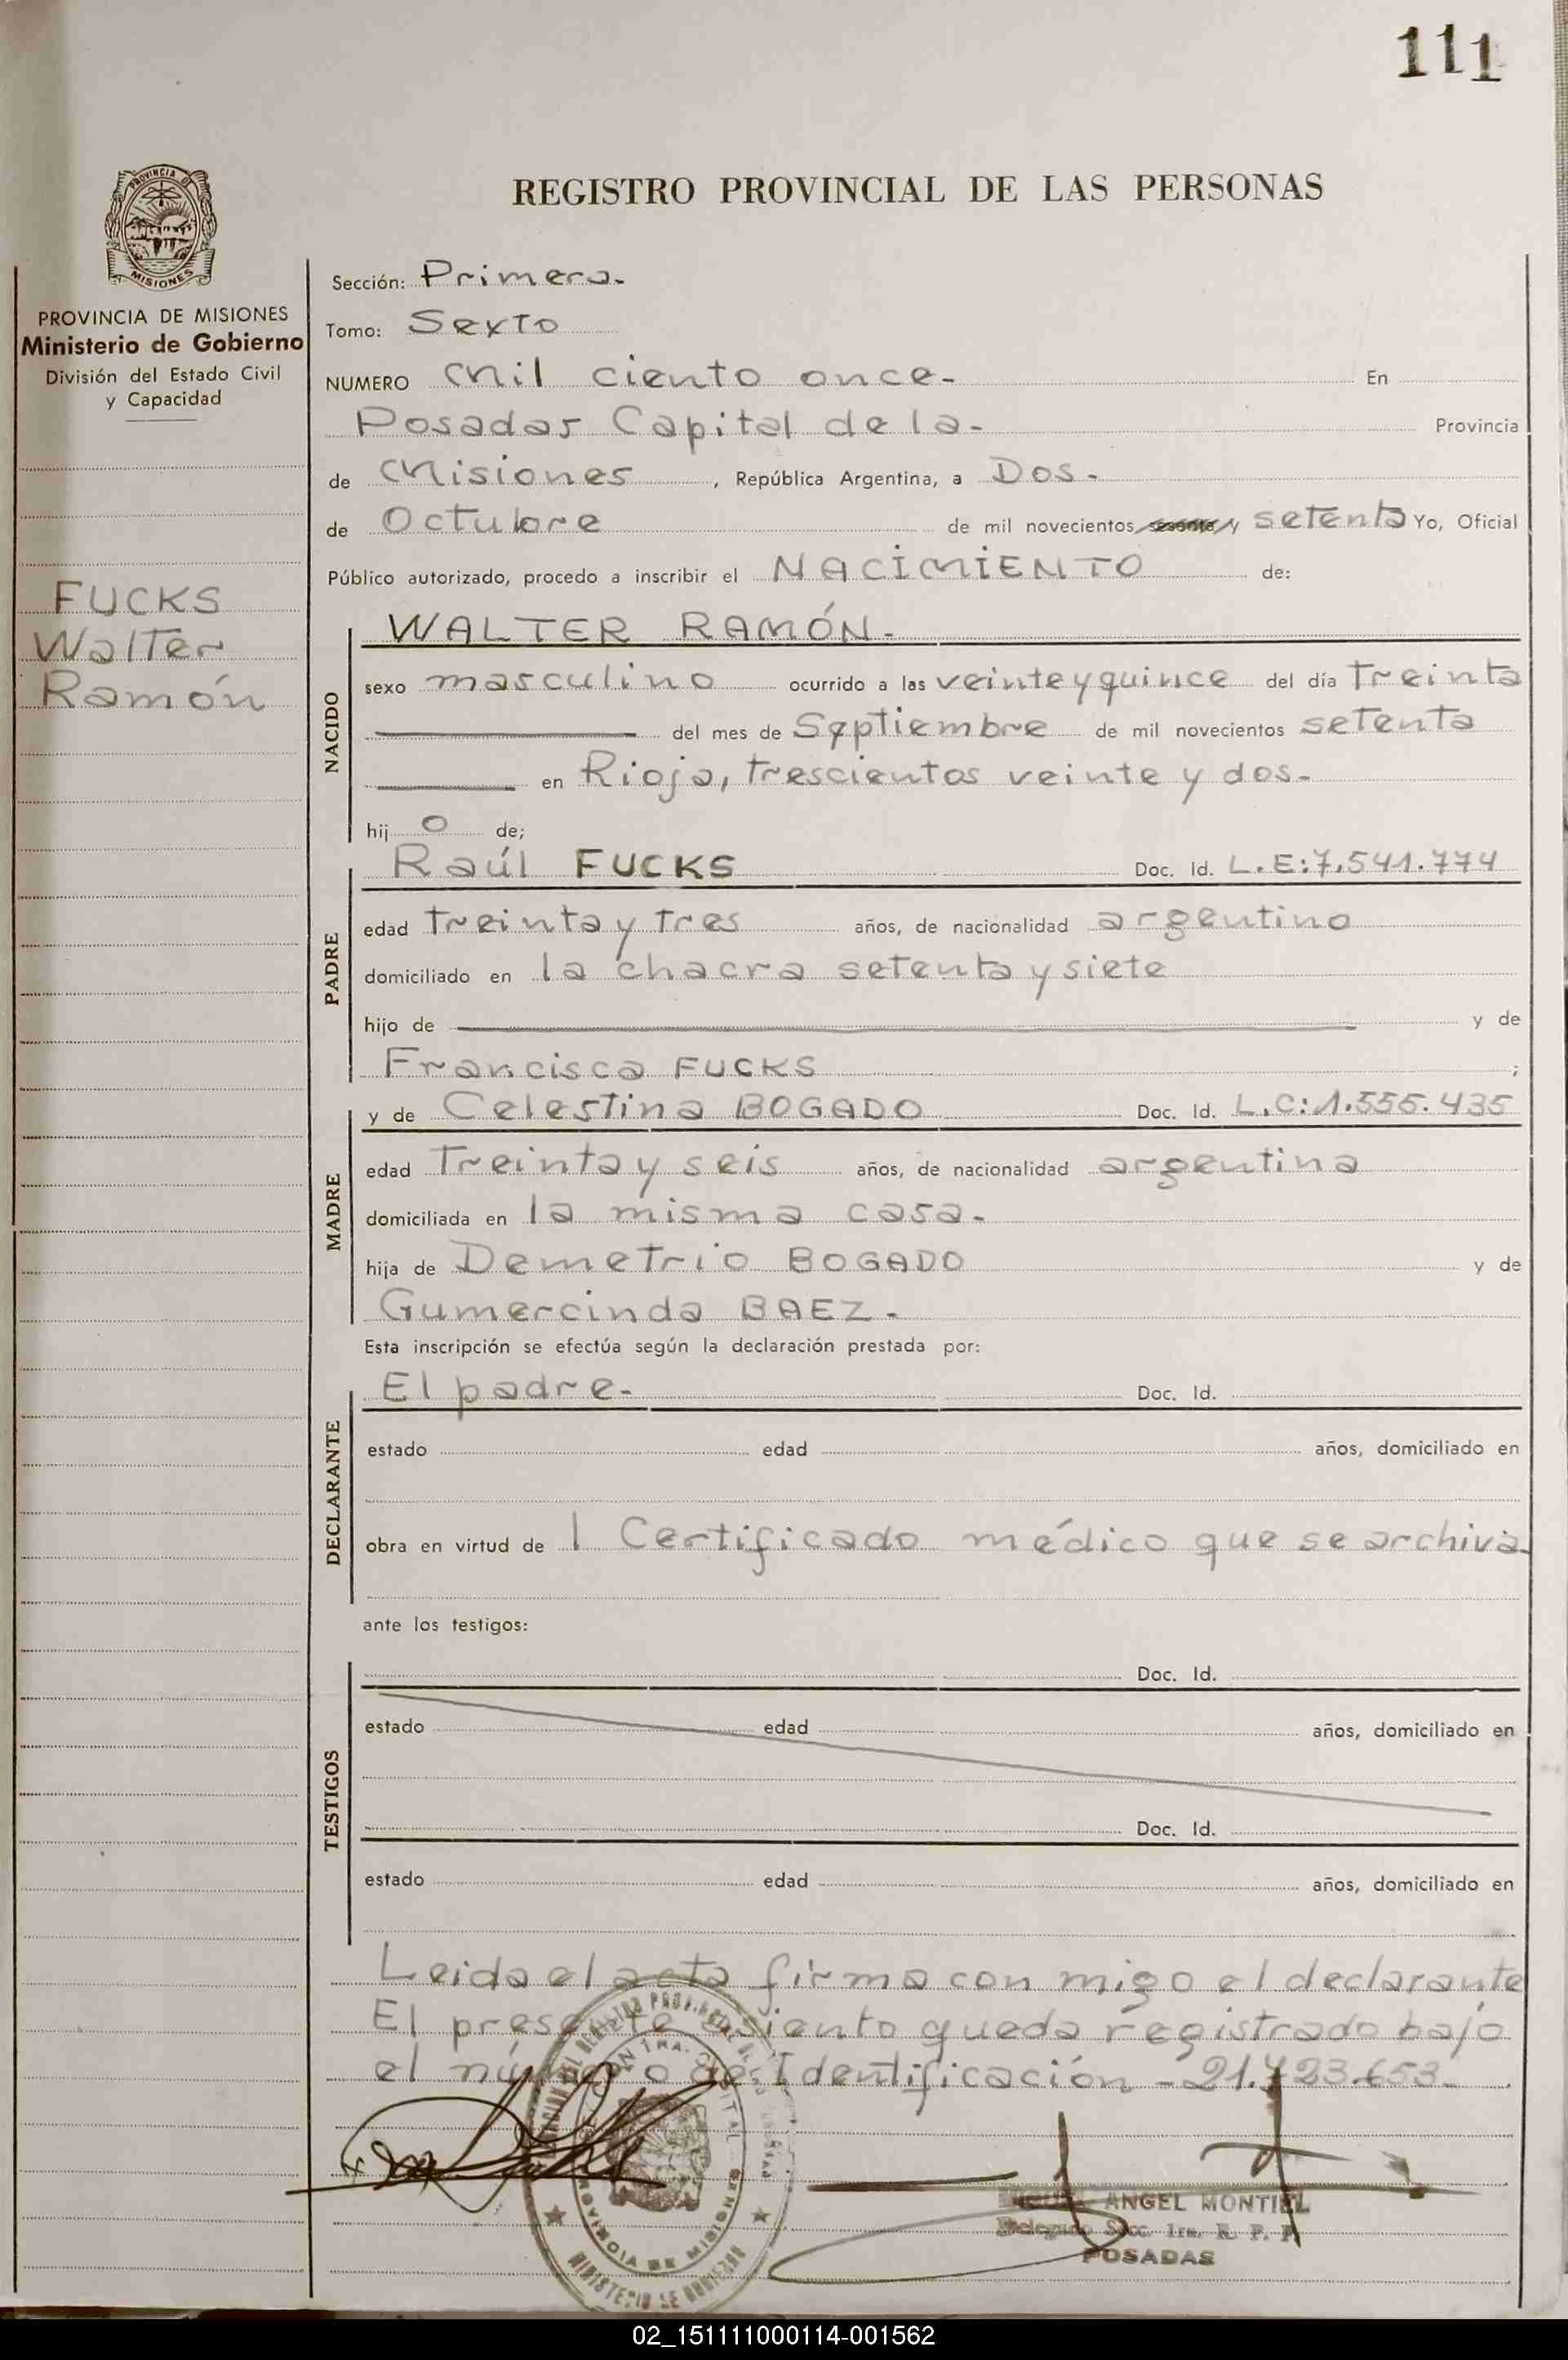 111
PROVINCIA DE
MISIONES
REGISTRO PROVINCIAL DE LAS PERSONAS
PROVINCIA DE MISIONES
Ministerio de Gobierno
División del Estado Civil
y Capacidad
FUCKS
Walter
Ramón
Sección: Primera-
Tomo: Sexto
NUMERO Mil ciento once- En
Posadas Capital de la- Provincia
de Misiones, República Argentina, a Dos-
de Octubre de mil novecientos sesenta y setenta Yo, Oficial
Público autorizado, procedo a inscribir el NACIMIENTO de:
NACIDO
WALTER RAMÓN-
sexo masculino ocurrido a las veinte y quince del día Treinta
del mes de Septiembre de mil novecientos setenta
en Rioja, trescientos veinte y dos-
hijo de;
PADRE
Raúl FUCKS Doc. Id. L.E:7.541.774
edad treinta y tres años, de nacionalidad argentino
domiciliado en la chacra setenta y siete
hijo de y de
Francisca FUCKS ;
MADRE
y de Celestina BOGADO Doc. Id. L.C:1.555.435
edad Treinta y seis años, de nacionalidad argentina
domiciliada en la misma casa-
hija de Demetrio BOGADO y de
Gumercinda BAEZ-
Esta inscripción se efectúa según la declaración prestada por:
DECLARANTE
El padre- Doc. Id.
estado edad años, domiciliado en
obra en virtud de l Certificado médico que se archiva-
ante los testigos:
TESTIGOS
Doc. Id.
estado edad años, domiciliado en
Doc. Id.
estado edad años, domiciliado en
Leida el acta firma con migo el declarante
El presente asiento queda registrado bajo
el número de Identificación -21.723.653-
ANGEL MONTIEL
Secc. 1ra. R. P. P.
POSADAS
02_151111000114-001562